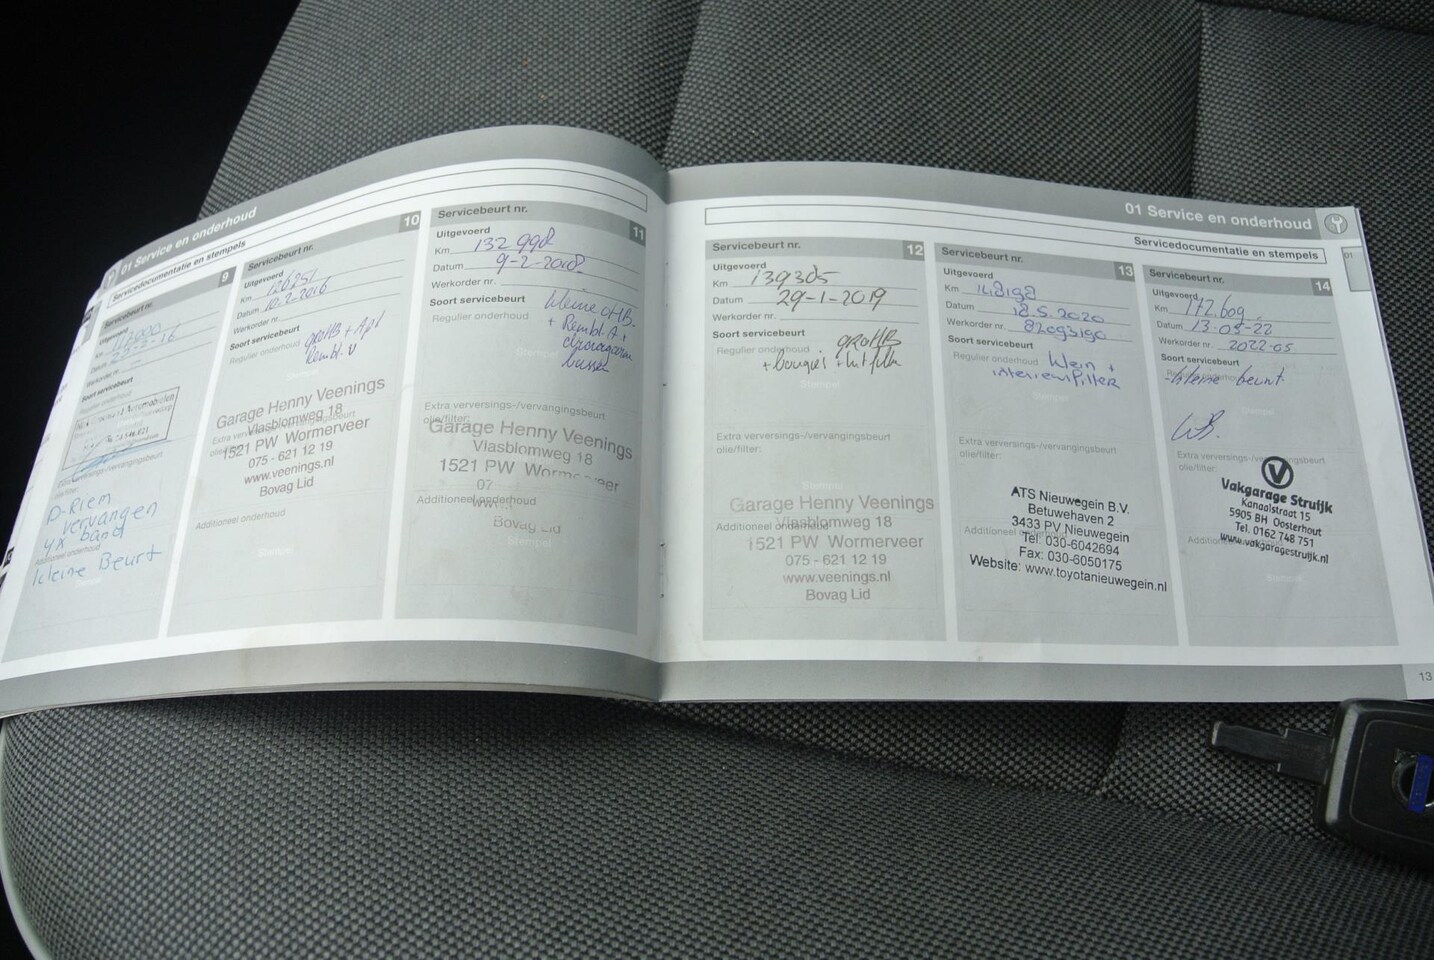 01 Service en onderhoud
Servicedocumentatie en stempels
Servicebeurt nr. 9
Uitgevoerd
Km
Datum
Werkorder nr.
Soort servicebeurt
olie/filter:
D-Riem
vervangen
4x band
Additioneel onderhoud
kleine Beurt
Servicebeurt nr. 10
Uitgevoerd
Km
Datum 10.2-2016
Werkorder nr.
Soort servicebeurt
Regulier onderhoud groHB + Apk
Rembl. V
Stempel
Garage Henny Veenings
Vlasblomweg 18
Extra verversings-/vervangingsbeurt
olie/filter:
1521 PW Wormerveer
075 - 621 12 19
www.veenings.nl
Bovag Lid
Additioneel onderhoud
Stempel
Servicebeurt nr. 11
Uitgevoerd
Km 132998
Datum 9-2-2018
Werkorder nr.
Soort servicebeurt
Regulier onderhoud kleine OHB.
+ Rembl. A +
Stempel
bussen
Extra verversings-/vervangingsbeurt
olie/filter:
Garage Henny Veenings
Vlasblomweg 18
1521 PW Wormerveer
07
www
Additioneel onderhoud
Bovag Lid
Stempel
01 Service en onderhoud
Servicedocumentatie en stempels
01
Servicebeurt nr. 12
Uitgevoerd
Km 139305
Datum 29-1-2019
Werkorder nr.
Soort servicebeurt
Regulier onderhoud groHB
+ Bougies + lutfilt
Stempel
Extra verversings-/vervangingsbeurt
olie/filter:
Stempel
Garage Henny Veenings
Additioneel onderhoud
Vlasblomweg 18
1521 PW Wormerveer
075 - 621 12 19
www.veenings.nl
Bovag Lid
Servicebeurt nr. 13
Uitgevoerd
Km 148198
Datum 18.5.2020
Werkorder nr. 82093190
Soort servicebeurt
Regulier onderhoud klein +
interieurfilter
Stempel
Extra verversings-/vervangingsbeurt
olie/filter:
ATS Nieuwegein B.V.
Betuwehaven 2
Additioneel onderhoud
3433 PV Nieuwegein
Tel: 030-6042694
Fax: 030-6050175
Website: www.toyotanieuwegein.nl
Servicebeurt nr. 14
Uitgevoerd
Km 172.609
Datum 13-05-22
Werkorder nr. 2022-05
Soort servicebeurt
Regulier onderhoud
- kleine beurt
Stempel
Extra verversings-/vervangingsbeurt
olie/filter:
V
Vakgarage Struijk
Kanaalstraat 15
5905 BH Oosterhout
Tel. 0162 748 751
www.vakgaragestruijk.nl
Stempel
13